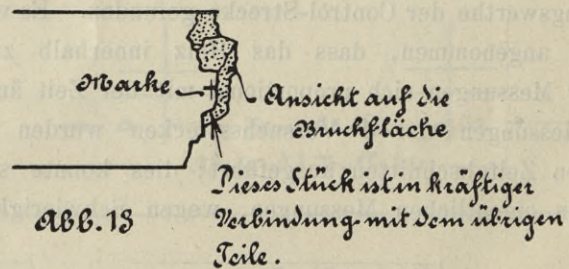 Marke
Ansicht auf die
Bruchfläche
Dieses Stück ist in kräftiger
Abb. 13 Verbindung mit dem übrigen
Teile.